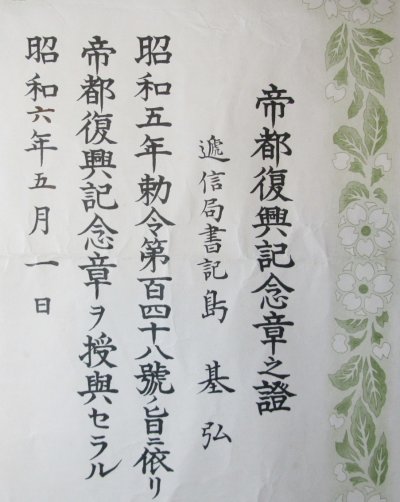 帝都復興記念章之證
遞信局書記 島 基弘
昭和五年勅令第百四十八號ノ旨ニ依リ
帝都復興記念章ヲ授與セラル
昭和六年五月一日